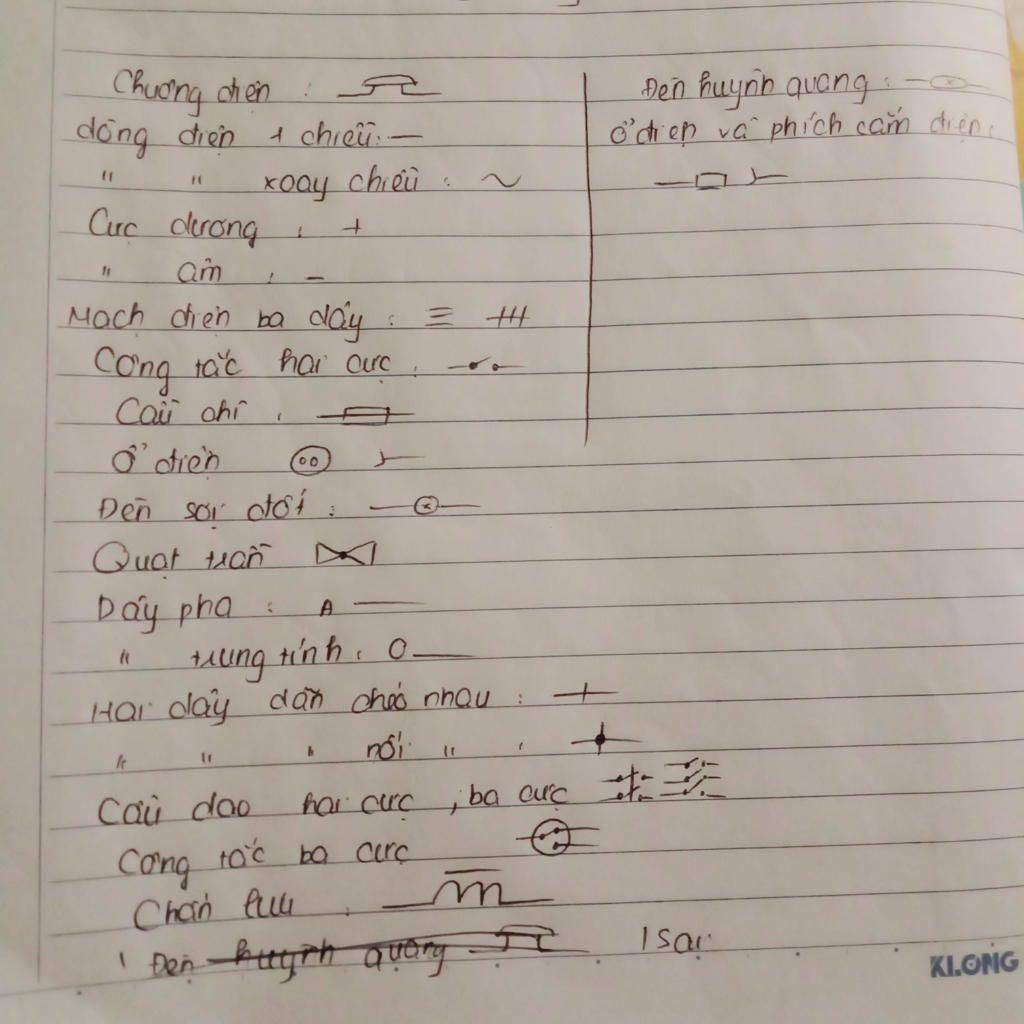 Chuông điện :
dòng điện 1 chiều: —
" " xoay chiều : ~
Cực dương : +
" âm : –
Mạch điện ba dây :
Công tắc hai cực :
Cầu chì :
Ổ điện
Đèn sợi đốt :
Quạt trần
Dây pha : A —
" trung tính : O —
Hai dây dẫn chéo nhau :
" " " nối " :
Cầu dao hai cực , ba cực
Công tắc ba cực
Chấn lưu :
Đèn huỳnh quang
1 sai
Đèn huỳnh quang :
Ổ điện và phích cắm điện :
KLONG